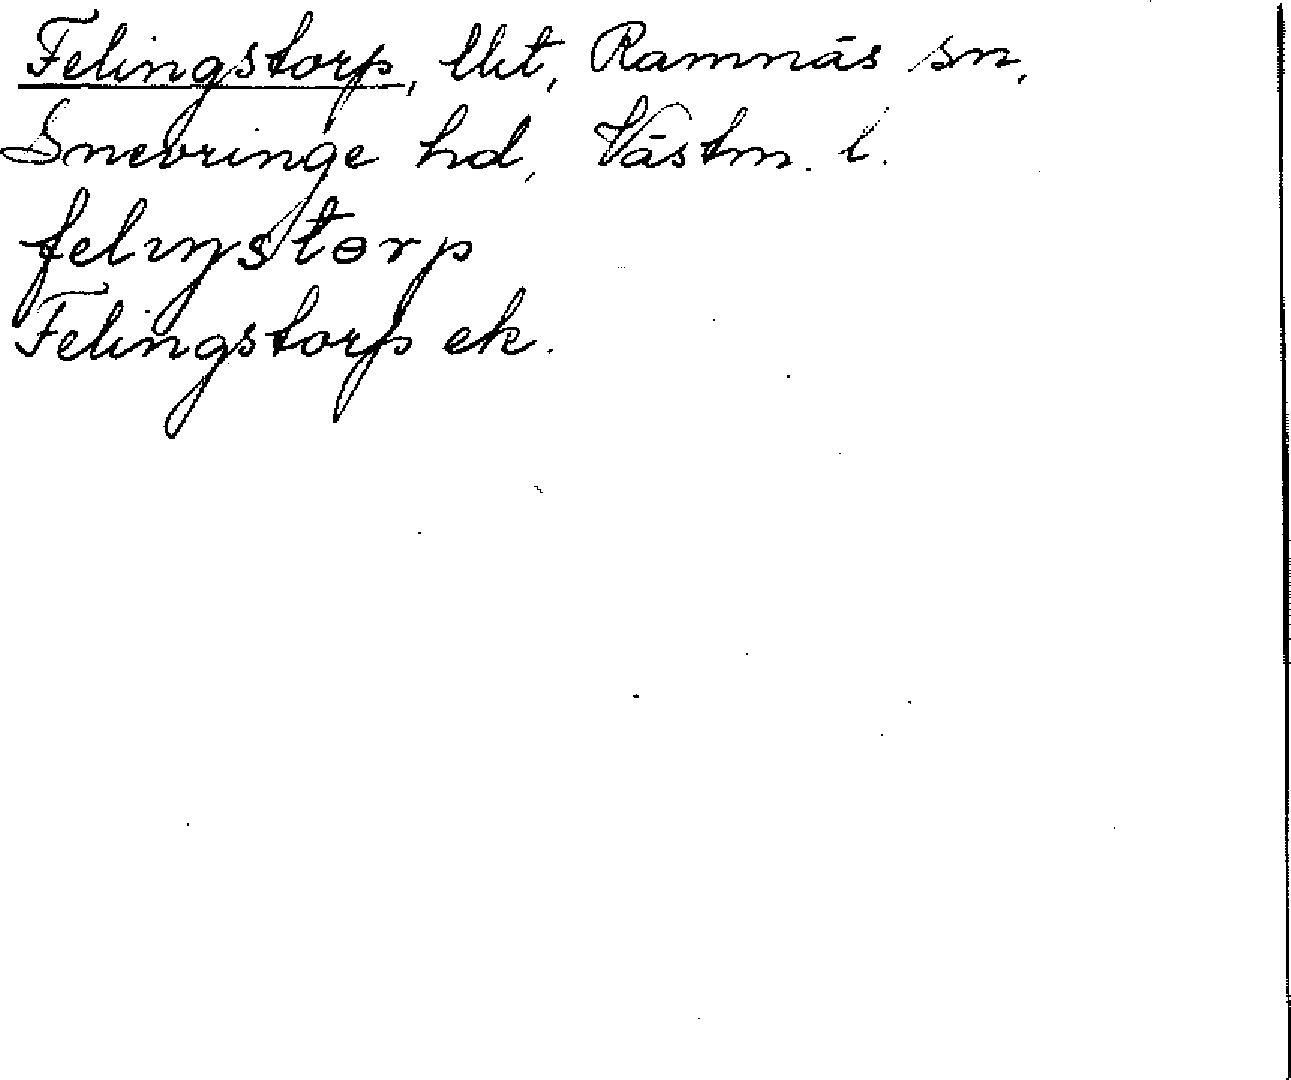 Felingstorp, lht, Ramnäs sn,
Snevringe hd, Västm. l.
felıŋstɵrp
Felingstorp ek.